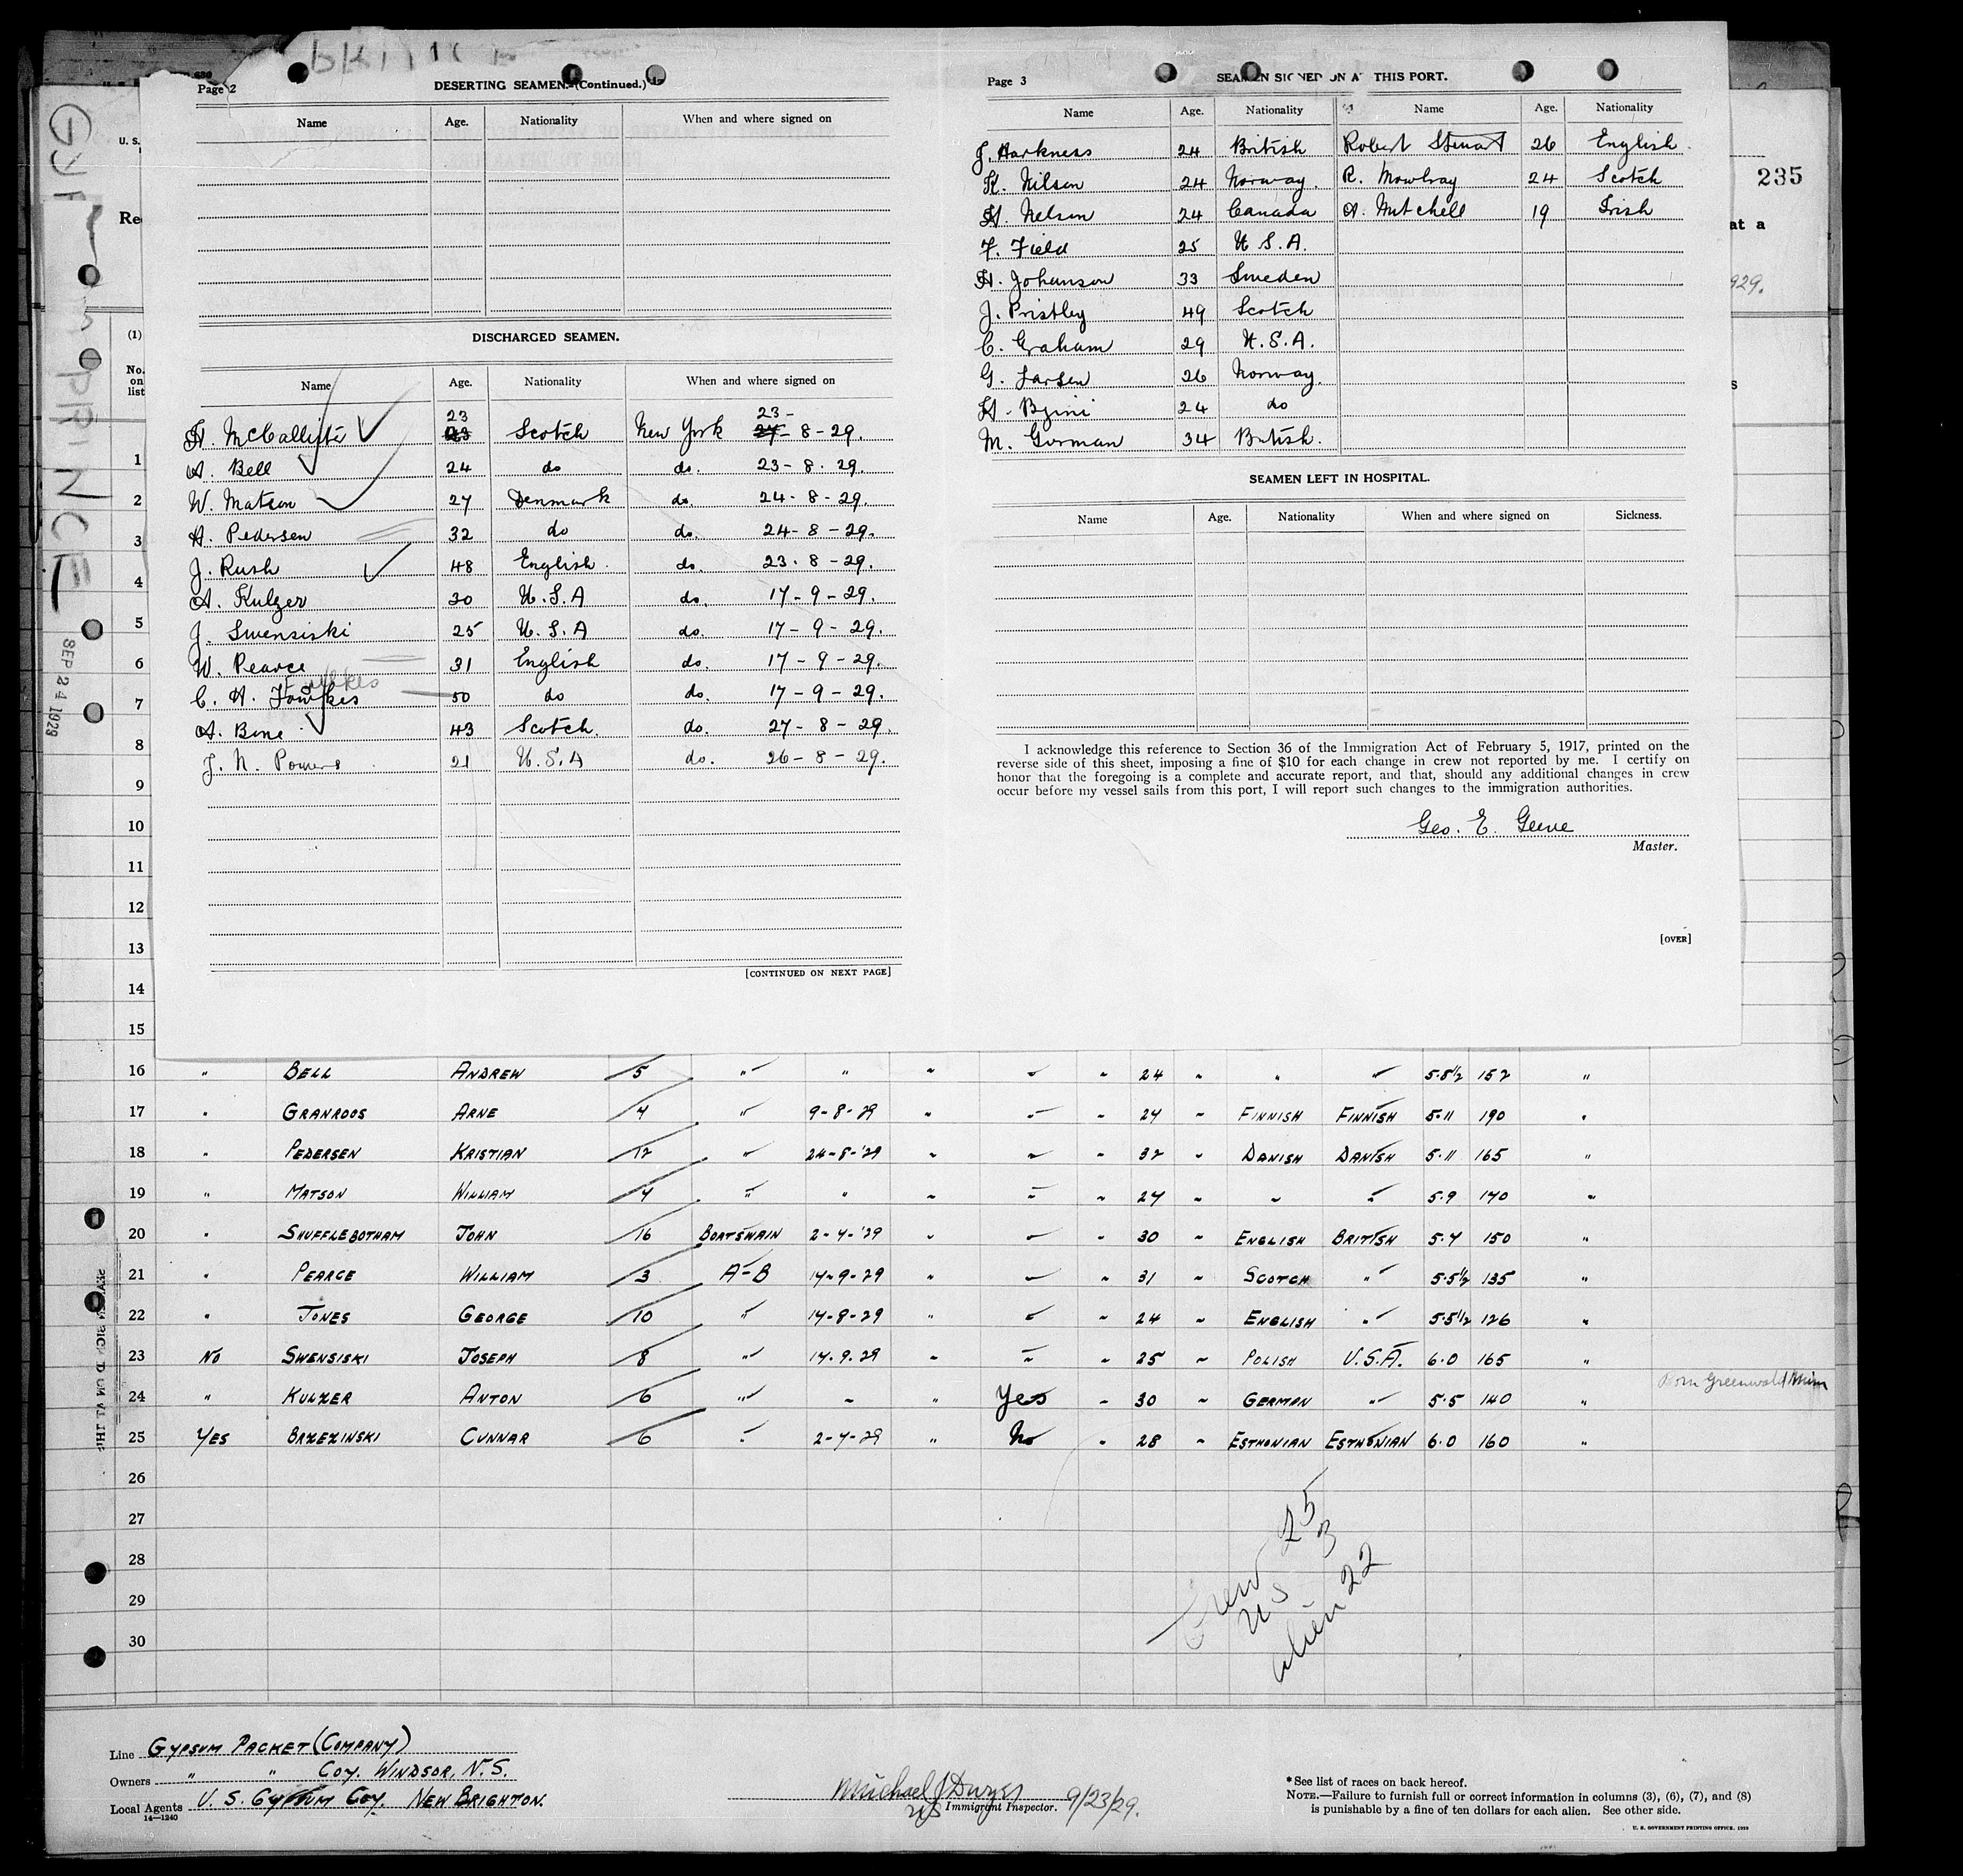 Page 2
DESERTING SEAMEN. (Continued.)
Name Age. Nationality When and where signed on
DISCHARGED SEAMEN.
Name Age. Nationality When and where signed on
H. McCallister 23 Scotch New York 23- 8-29.
A. Bell 24 do do. 23-8-29.
W. Matson 27 Denmark do. 24-8-29.
A. Pedersen 32 do do. 24-8-29.
J. Rush 48 English. do. 23-8-29.
A. Kulzer 30 U.S.A do. 17-9-29.
J. Swensiski 25 U.S.A do. 17-9-29.
W. Pearce 31 English do. 17-9-29.
C. H. Fowlkes 50 do do. 17-9-29.
A. Bone 43 Scotch. do. 27-8-29.
J. N. Powers 21 U.S.A do. 26-8-29.
[CONTINUED ON NEXT PAGE]
Page 3
SEAMEN SIGNED ON AT THIS PORT.
Name Age. Nationality Name Age. Nationality
J. Harkness 24 British Robert Stewart 26 English.
K. Nilson 24 Norway. R. Mowbray 24 Scotch
H. Nelson 24 Canada A. Mitchell 19 Irish
F. Field 25 U.S.A.
H. Johanson 33 Sweden
J. Pristley 49 Scotch
C. Graham 29 U.S.A.
G. Larsen 26 Norway.
24 do
M. Gorman 34 British.
SEAMEN LEFT IN HOSPITAL.
Name Age. Nationality When and where signed on Sickness.
I acknowledge this reference to Section 36 of the Immigration Act of February 5, 1917, printed on the
reverse side of this sheet, imposing a fine of $10 for each change in crew not reported by me. I certify on
honor that the foregoing is a complete and accurate report, and that, should any additional changes in crew
occur before my vessel sails from this port, I will report such changes to the immigration authorities.
Geo. E.
Master.
[OVER]
235
at a
929.
U. S.
Re
(1)
No.
on
list
PRINCE
SEP 24 1929
1
2
3
4
5
6
7
8
9
10
11
12
13
14
15
16 " BELL ANDREW 5 " " " " " 24 " " " 5.8½ 152 "
17 " GRANROOS ARNE 4 " 9-8-29 " " " 24 " FINNISH FINNISH 5.11 190 "
18 " PEDERSEN KRISTIAN 12 " 24-8-'29 " " " 32 " DANISH DANISH 5.11 165 "
19 " MATSON WILLIAM 4 " " " " " 27 " " " 5.9 170 "
20 " SHUFFLEBOTHAM JOHN 16 BOATSWAIN 2-7-'29 " " " 30 " ENGLISH BRITISH 5.7 150 "
21 " PEARCE WILLIAM 3 A-B 17-9-29 " " " 31 " SCOTCH " 5.5½ 135 "
22 " JONES GEORGE 10 " 17-8-29 " " " 24 " ENGLISH " 5.5½ 126 "
23 NO SWENSISKI JOSEPH 8 " 17.9.29 " " " 25 " POLISH U.S.A. 6.0 165 "
24 " KULZER ANTON 6 " " " Yes " 30 " GERMAN " 5.5 140 " Born Greenwald Minn
25 YES BRZEZINSKI GUNNAR 6 " 2-7-29 " No " 28 " ESTHONIAN ESTHONIAN 6.0 160 "
26
27
28
29
30
Crew 25
US 3
Alien 22
Line GYPSUM PACKET (COMPANY)
Owners " " COY. WINDSOR, N.S.
Local Agents U. S. GYPSUM COY. NEW BRIGHTON.
14-1240
Michael J Dwyer
US Immigrant Inspector. 9/23/29.
*See list of races on back hereof.
NOTE.—Failure to furnish full or correct information in columns (3), (6), (7), and (8)
is punishable by a fine of ten dollars for each alien. See other side.
U. S. GOVERNMENT PRINTING OFFICE, 1929